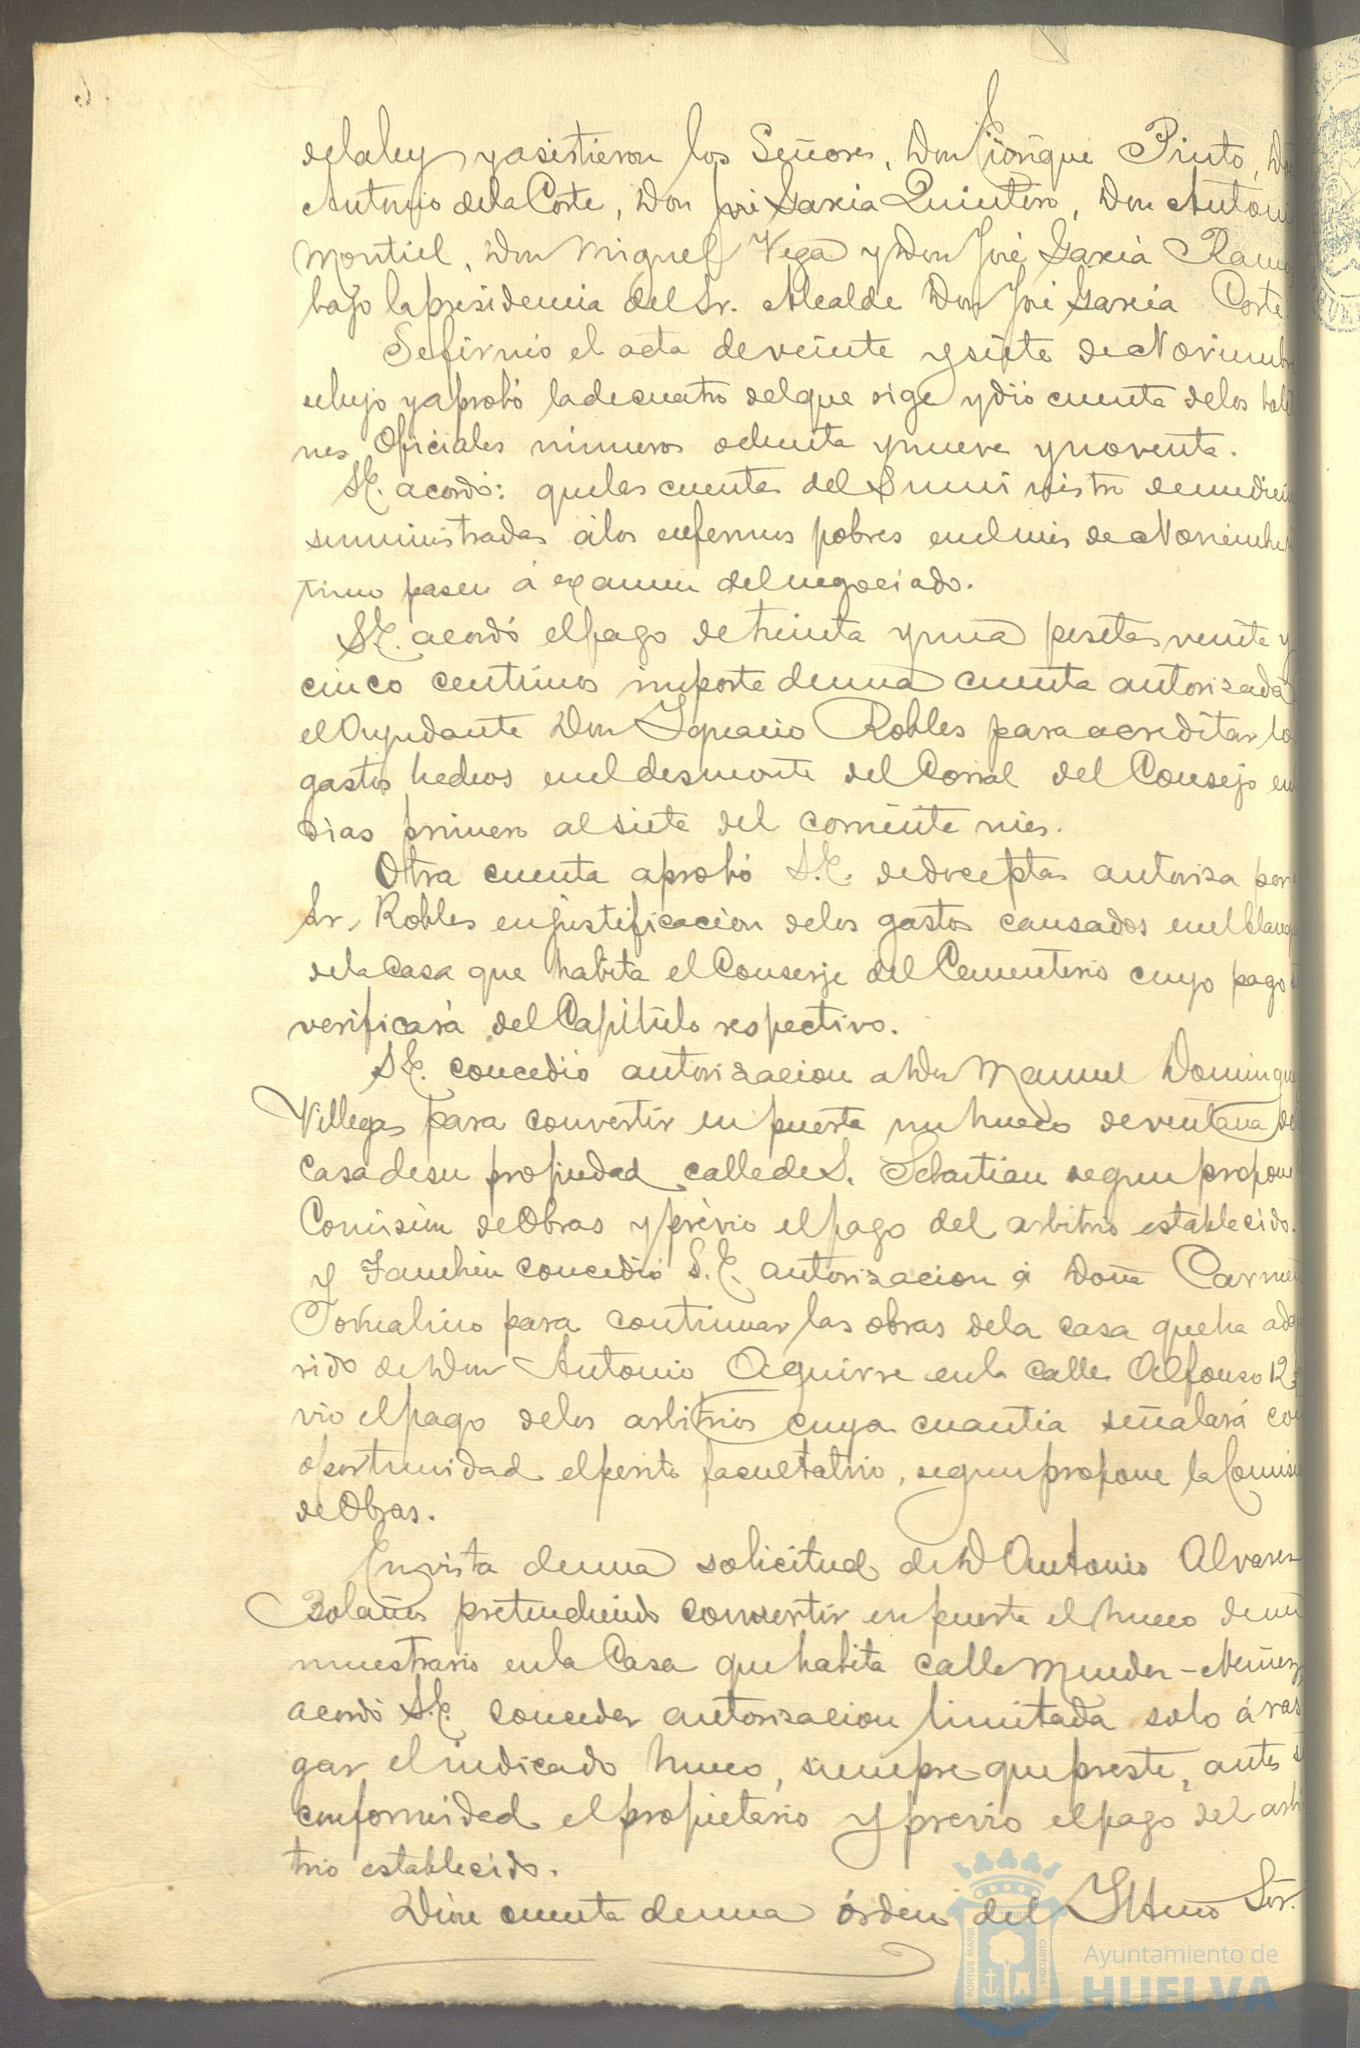 de la ley y asistieron los Señores, Don Enrique Pinto, Don
Antonio de la Corte, Don José Garcia Quintero, Don Antoni
Montiel, Don Miguel Vega y Don José Garcia Ramo
bajo la presidencia del Sr. Alcalde Don José Garcia Corte.
Se firmó el acta de veinte y siete de Noviembre
y aprobó la de cuatro del que rige y dió cuenta de los bole
nes Oficiales números ochenta y nueve y noventa.
S.E. acordó: que las cuentas del Suministro de medicin
suministradas á los enfermos pobres en el mes de Noviembre
timo pasen á examen del negociado.
S.E. acordó el pago de treinta y una pesetas veinte y
cinco centimos importe de una cuenta autorizada
el Ayudante Don Ignacio Robles para acreditar lo
gastos hechos en el desmonte del Corral del Consejo en
dias primero al siete del corriente mes.
Otra cuenta aprobó S.E. de doce ptas autoriza por
Sr. Robles en justificacion de los gastos causados en el blanq
de la Casa que habita el Conserje del Cementerio cuyo pago
verificará del Capítulo respectivo.
S.E. concedió autorizacion a Don Manuel Domingu
Villegas para convertir en puerta un hueco de ventana de
casa de su propiedad calle de S. Sebastian segun propone
Comision de Obras y prévio el pago del arbitrio establecido.
Y Tambien concedió S.E. autorizacion á Doña Carmen
para continuar las obras de la casa que ha adq
rido de Don Antonio Aguirre en la calle Alfonso 12
vio el pago de los arbitrios cuya cuantia señalará con
oportunidad el perito facultativo, segun propone la Comisi
de Obras.
En vista de una solicitud de D Antonio Alvarez
Bolaños pretendiendo convertir en puerta el hueco de un
muestrario en la Casa que habita calle Mendez-Nuñez
acordó S.E. conceder autorizacion limitada solo á ras
gar el indicado hueco, siempre que preste, antes s
conformidad el propietario y previo el pago del arbi
trio establecido.
Dióse cuenta de una órden del Iltmo Sor.
PORTUS MARIS
CUSTODIA
Ayuntamiento de
HUELVA